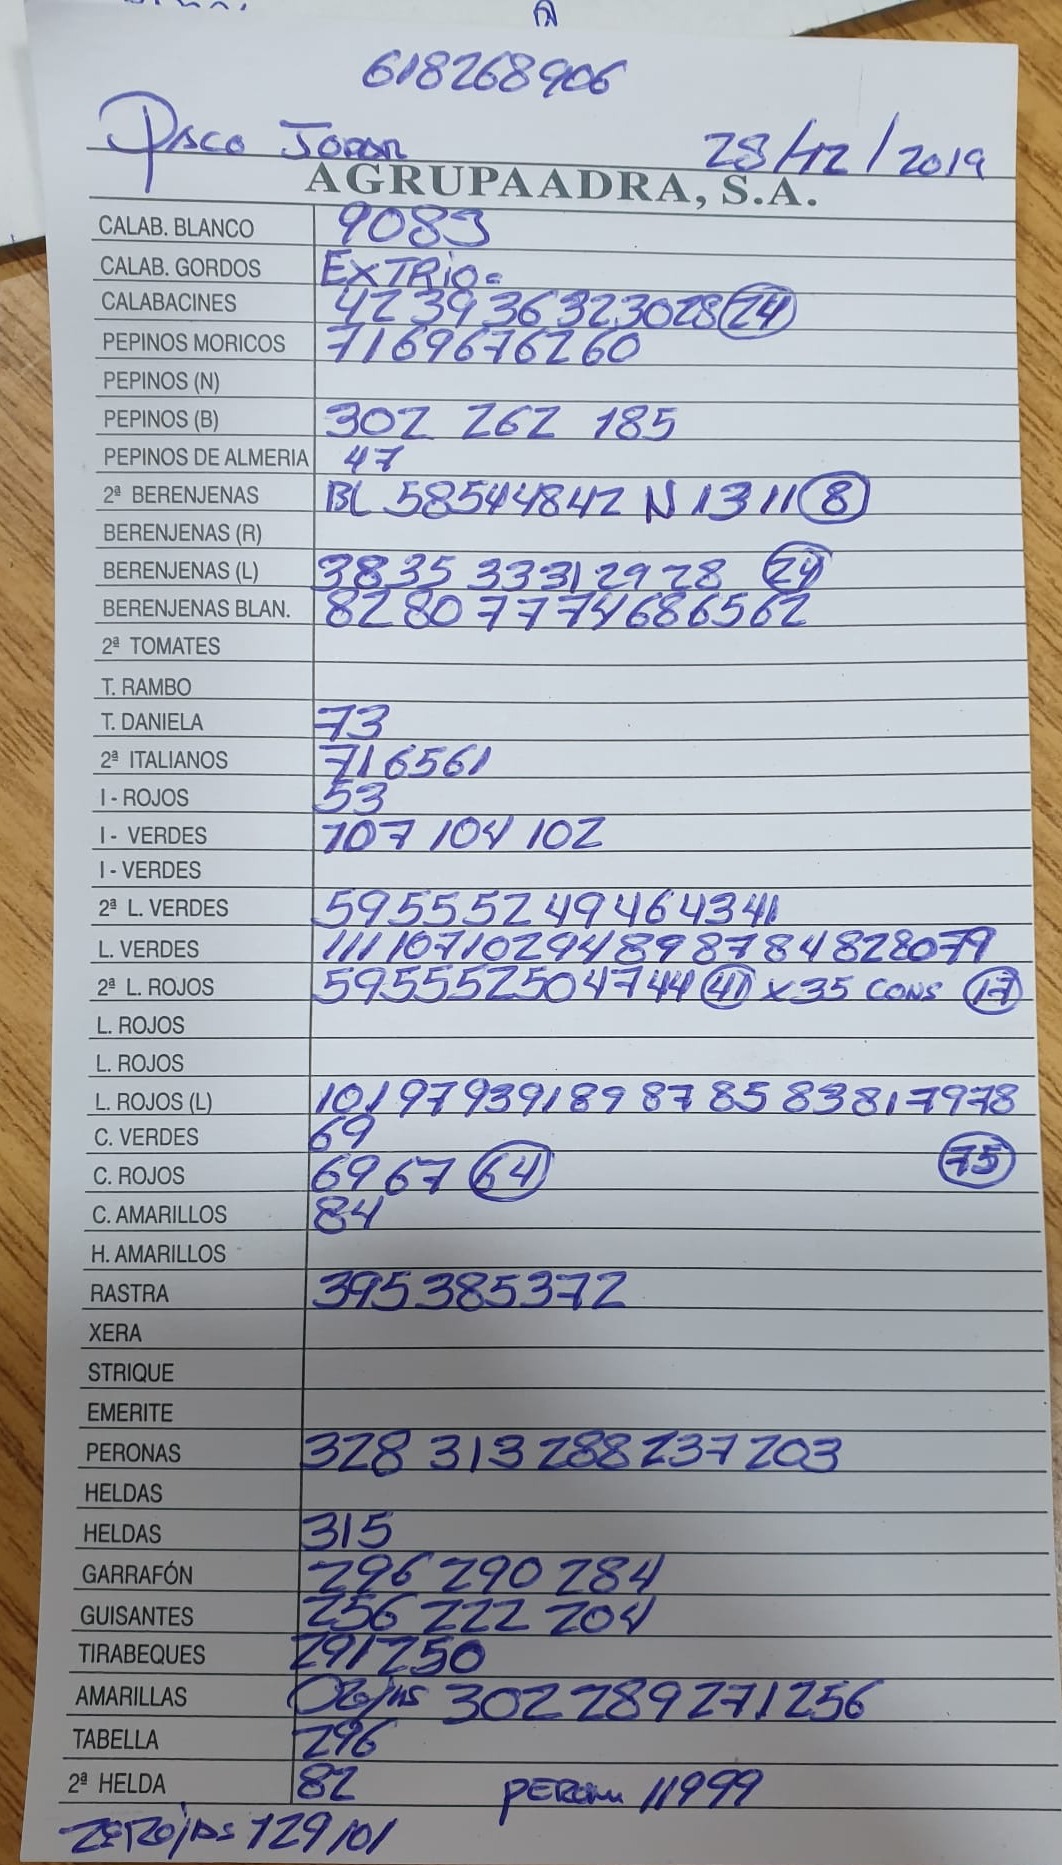 618268906
Paco Joran 28/12/2019
AGRUPAADRA, S.A.
CALAB. BLANCO 9083
CALAB. GORDOS EXTRIO=
CALABACINES 42 39 36 32 3028 24
PEPINOS MORICOS 71 69 67 62 60
PEPINOS (N)
PEPINOS (B) 302 262 185
PEPINOS DE ALMERIA 47
2ª BERENJENAS BL 58 54 48 42 N 13 11 8
BERENJENAS (R)
BERENJENAS (L) 38 35 33 31 29 28 24
BERENJENAS BLAN. 82 80 77 74 68 65 62
2ª TOMATES
T. RAMBO
T. DANIELA 73
2ª ITALIANOS 71 65 61
I - ROJOS 53
I - VERDES 107 104 102
I - VERDES
2ª L. VERDES 59 55 52 49 46 43 41
L. VERDES 111 107 102 94 89 87 84 82 80 79
2ª L. ROJOS 59 55 52 50 47 44 41 x 35 CONS 17
L. ROJOS
L. ROJOS
L. ROJOS (L) 101 97 93 91 89 87 85 83 81 79 78
C. VERDES 69
C. ROJOS 69 67 64 75
C. AMARILLOS 84
H. AMARILLOS
RASTRA 395 385 372
XERA
STRIQUE
EMERITE
PERONAS 328 313 288 237 203
HELDAS
HELDAS 315
GARRAFÓN 296 290 284
GUISANTES 256 222 204
TIRABEQUES 291 250
AMARILLAS 302 289 271 256
TABELLA 296
2ª HELDA 82 11999
129 101